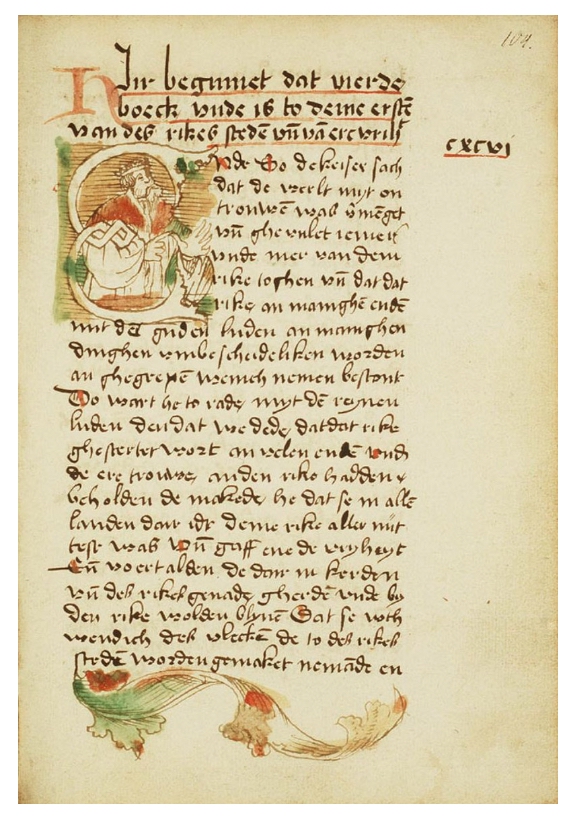 104.
Hir beginnet dat vierde
boeck vnde is to deme erstē
van des rikes stedē vn̄ vā erer vrih
cxcvi
vnde do de keiser sach
dat de werlt myt on
trouwē was vmēget
vn̄ ghe
vnde mer van dem
rike toghen vn̄ dat dat
rike an mannighē endē
mit dē guden luden an mannighen
dinghen vmbescheideliken worden
an ghegrepen wemich nemen bestont
Do wart he to rade myt dē reynen
luden den dat we dede dat dat rike
ghestertet wort an velen endē vnd
de ere trouwe an den rike hadden
beholden de makede he dat se in allē
landen dar idt deme rike aller nut
test was Vn̄ gaff ene de vryheyt
En̄ voert al den de dar in kerden
vn̄ des rikes genade gherdē vnde by
den rike wolden blyuē Dat se vth
wendich des vleckē de to des rikes
stedē worden gemaket nemāde en